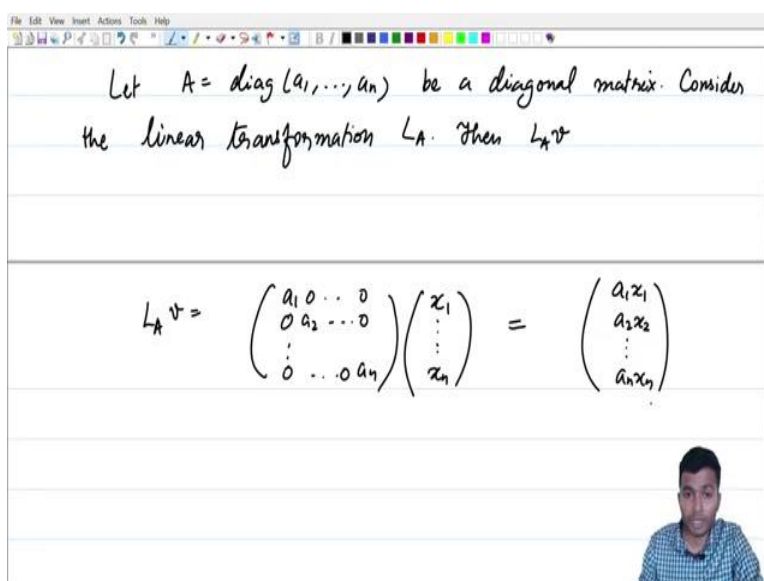 File Edit View Insert Actions Tools Help
Let A = diag (a₁, ..., aₙ) be a diagonal matrix. Consider
the linear transformation L_A. Then L_A v
L_A v = ( a₁ 0 .. 0 ) ( x₁ ) = ( a₁x₁ )
( 0 a₂ ... 0 ) ( ⋮ ) ( a₂x₂ )
( ⋮ ) ( ⋮ ) ( ⋮ )
( 0 ... 0 aₙ ) ( xₙ ) ( aₙxₙ )